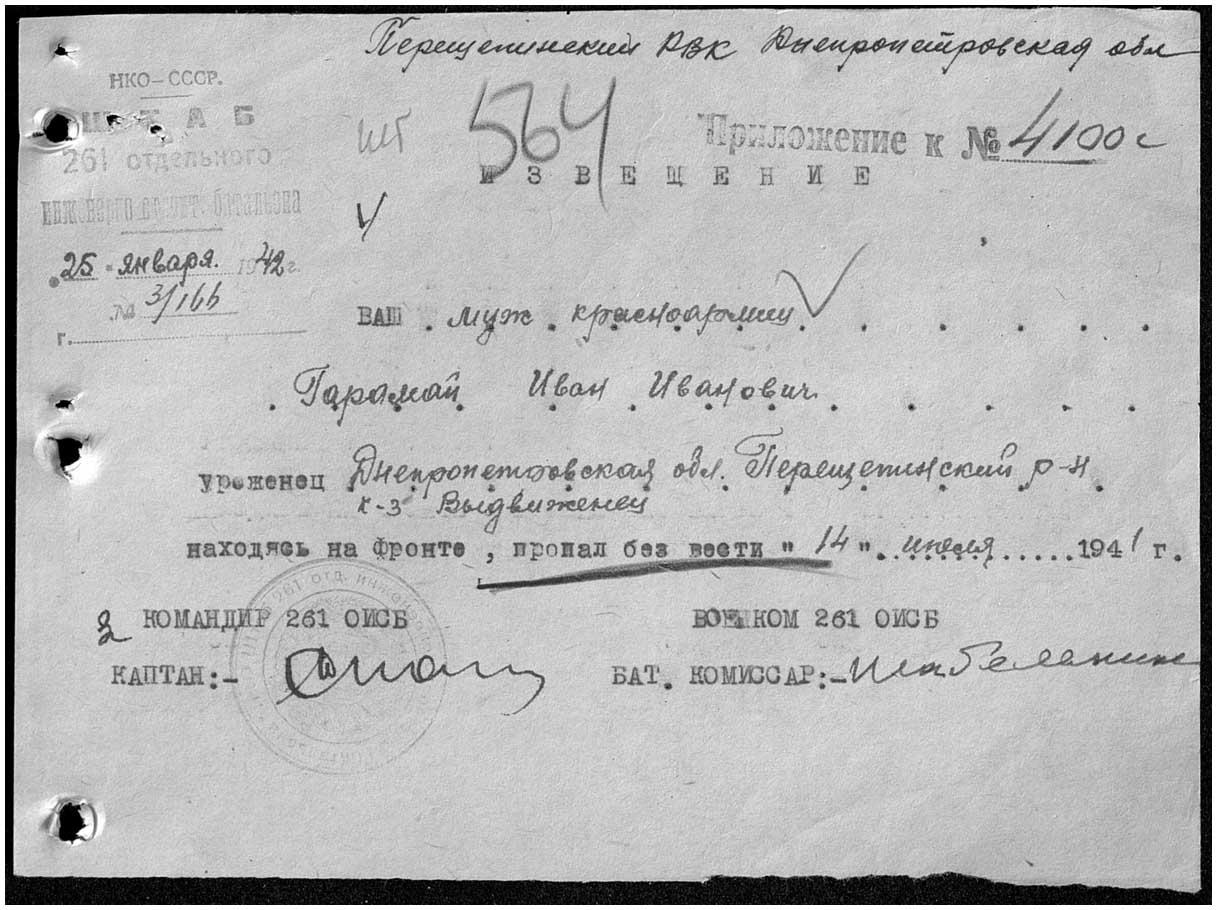 Перещепинский РВК Днепропетровская обл
НКО—СССР.
ШТАБ
261 отдельного
инженерно батальона
"25" января. 1942 г.
№ 3/166
г.
шт
564
Приложение к № 4100с
ИЗВЕЩЕНИЕ
ВАШ муж красноармиец
Гарамай Иван Иванович
уроженец Днепропетровская обл. Перещепинский р-н.
к-з Выдвиженец
находясь на фронте, пропал без вести "14" июля 1941 г.
КОМАНДИР 261 ОИСБ
КАПТАН:-
ВОЕНКОМ 261 ОИСБ
БАТ. КОМИССАР:-
261 отд. инж